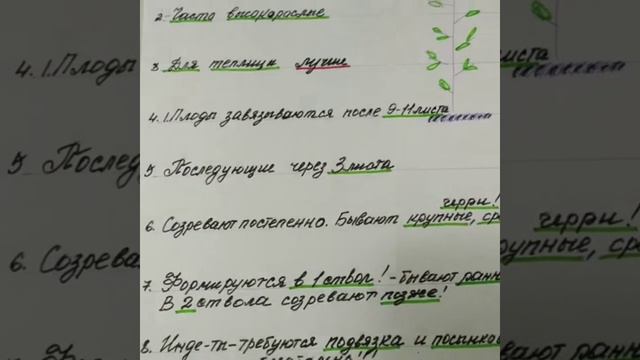 2. Часто высокорослые
3. Для теплицы лучше
4.1. Плоды завязываются после 9-11 листа
5. Последующие через 3 листа
черри!
6. Созревают постепенно. Бывают крупные, ср
7. Формируются в 1 ствол! - бывают ранн
В 2 ствола созревают позже!
8. Инде-ты-требуются подвязка и
4.1. Плоды
листа
5 Последу
черри!
6. Созрева
рупные, ср